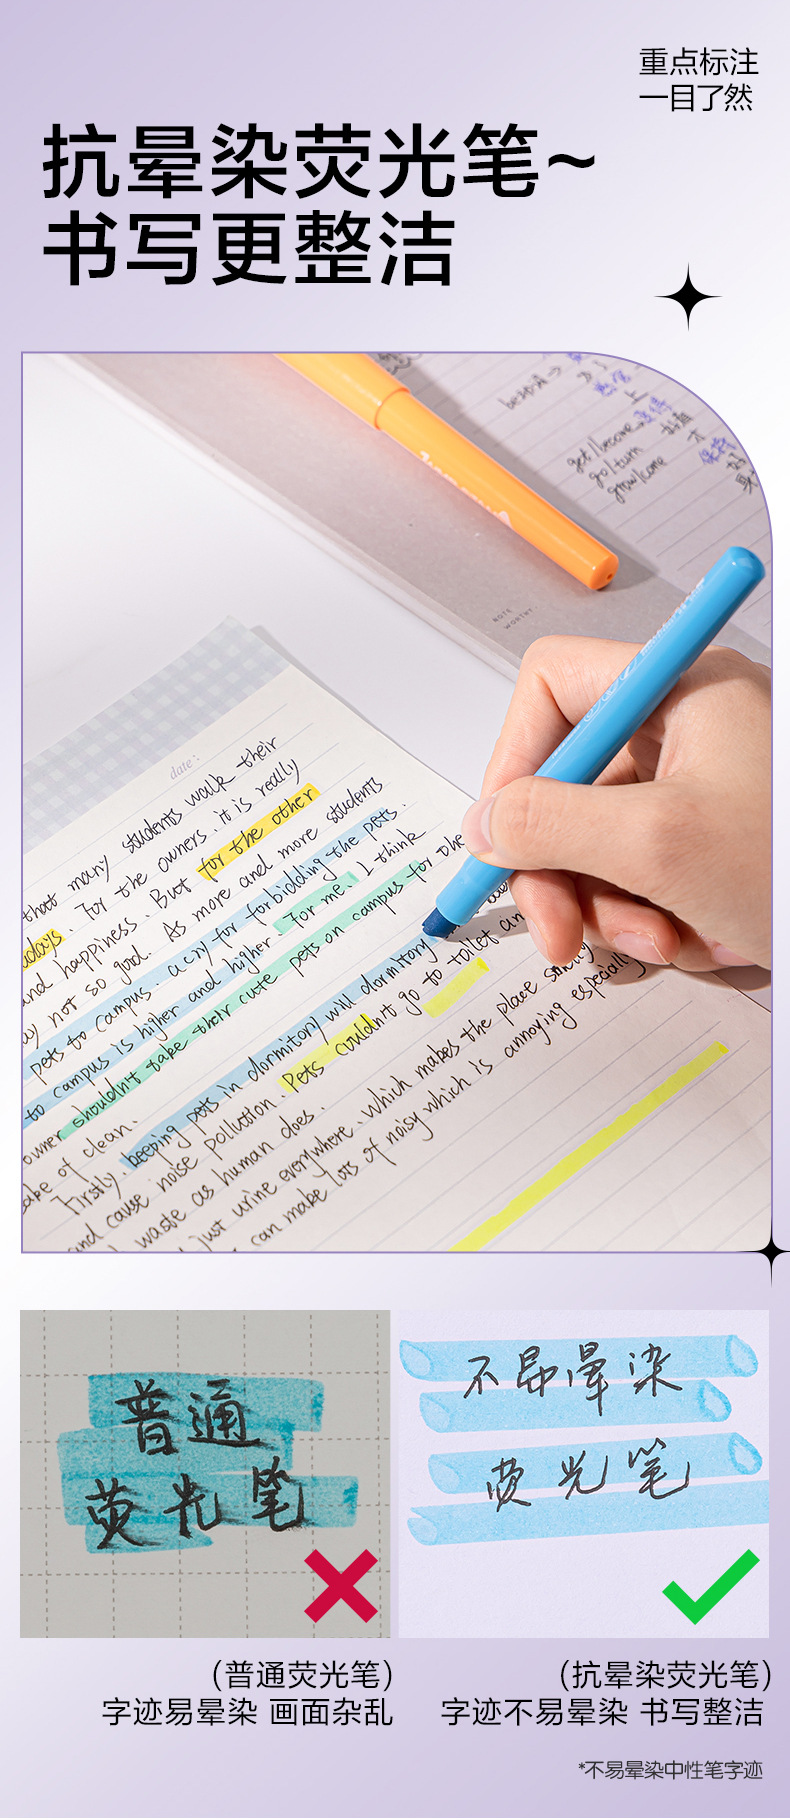 重点标注
一目了然
抗晕染荧光笔~
书写更整洁
get/become
go/turn
grow/come
NOTE
WORTHY
date:
that many students walk their
days. For the owners, it is really
and happiness. But for the other
not so good. As more and more students
pets to campus. a cry for forbidding the pets.
to campus is higher and higher. For me, I think
owner shouldn't take their cute pets on campus for the
sake of clean.
Firstly, keeping pets in dormitory will dormitory
and cause noise pollution. Pets couldn't go to toilet an
waste as human does.
just urine everywhere. Which makes the place smelly
can make lots of noisy which is annoying especially
普通
荧光笔
不易晕染
荧光笔
(普通荧光笔)
字迹易晕染 画面杂乱
(抗晕染荧光笔)
字迹不易晕染 书写整洁
*不易晕染中性笔字迹